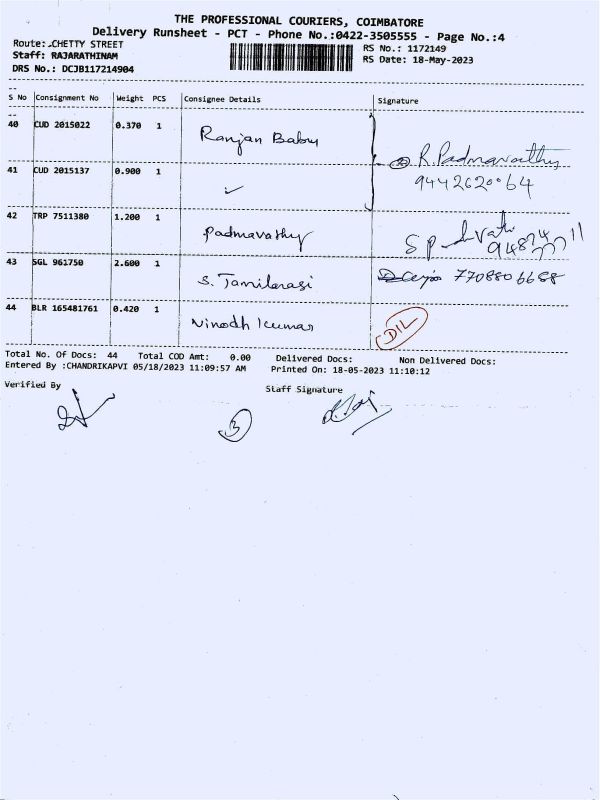 THE PROFESSIONAL COURIERS, COIMBATORE
Delivery Runsheet - PCT - Phone No.:0422-3505555 - Page No.:4
Route: .CHETTY STREET
RS No.: 1172149
Staff: RAJARATHINAM
RS Date: 18-May-2023
DRS No.: DCJB117214904
S No Consignment No Weight PCS Consignee Details Signature
40 CUD 2015022 0.370 1 Ranjan Babu
R. Padmavathy
41 CUD 2015137 0.900 1 ✓
9442620064
42 TRP 7511380 1.200 1 Padmavathy
43 SGL 961750 2.600 1 S. Tamilarasi 7708806688
44 BLR 165481761 0.420 1 Vinodh kumar DIL
Total No. Of Docs: 44 Total COD Amt: 0.00 Delivered Docs: Non Delivered Docs:
Entered By :CHANDRIKAPVI 05/18/2023 11:09:57 AM Printed On: 18-05-2023 11:10:12
Verified By
Staff Signature
3